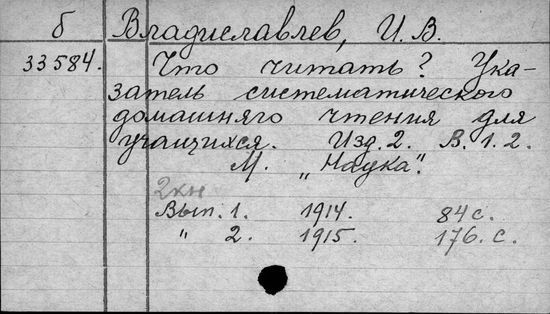 б Владиславлев, И. В.
33584. Что читать? Ука-
затель систематического
домашняго чтения для
учащихся. Изд. 2. В. 1. 2.
М. „Наука".
2 кн
Вып. 1. 1914. 84 с.
" 2. 1915. 176. с.